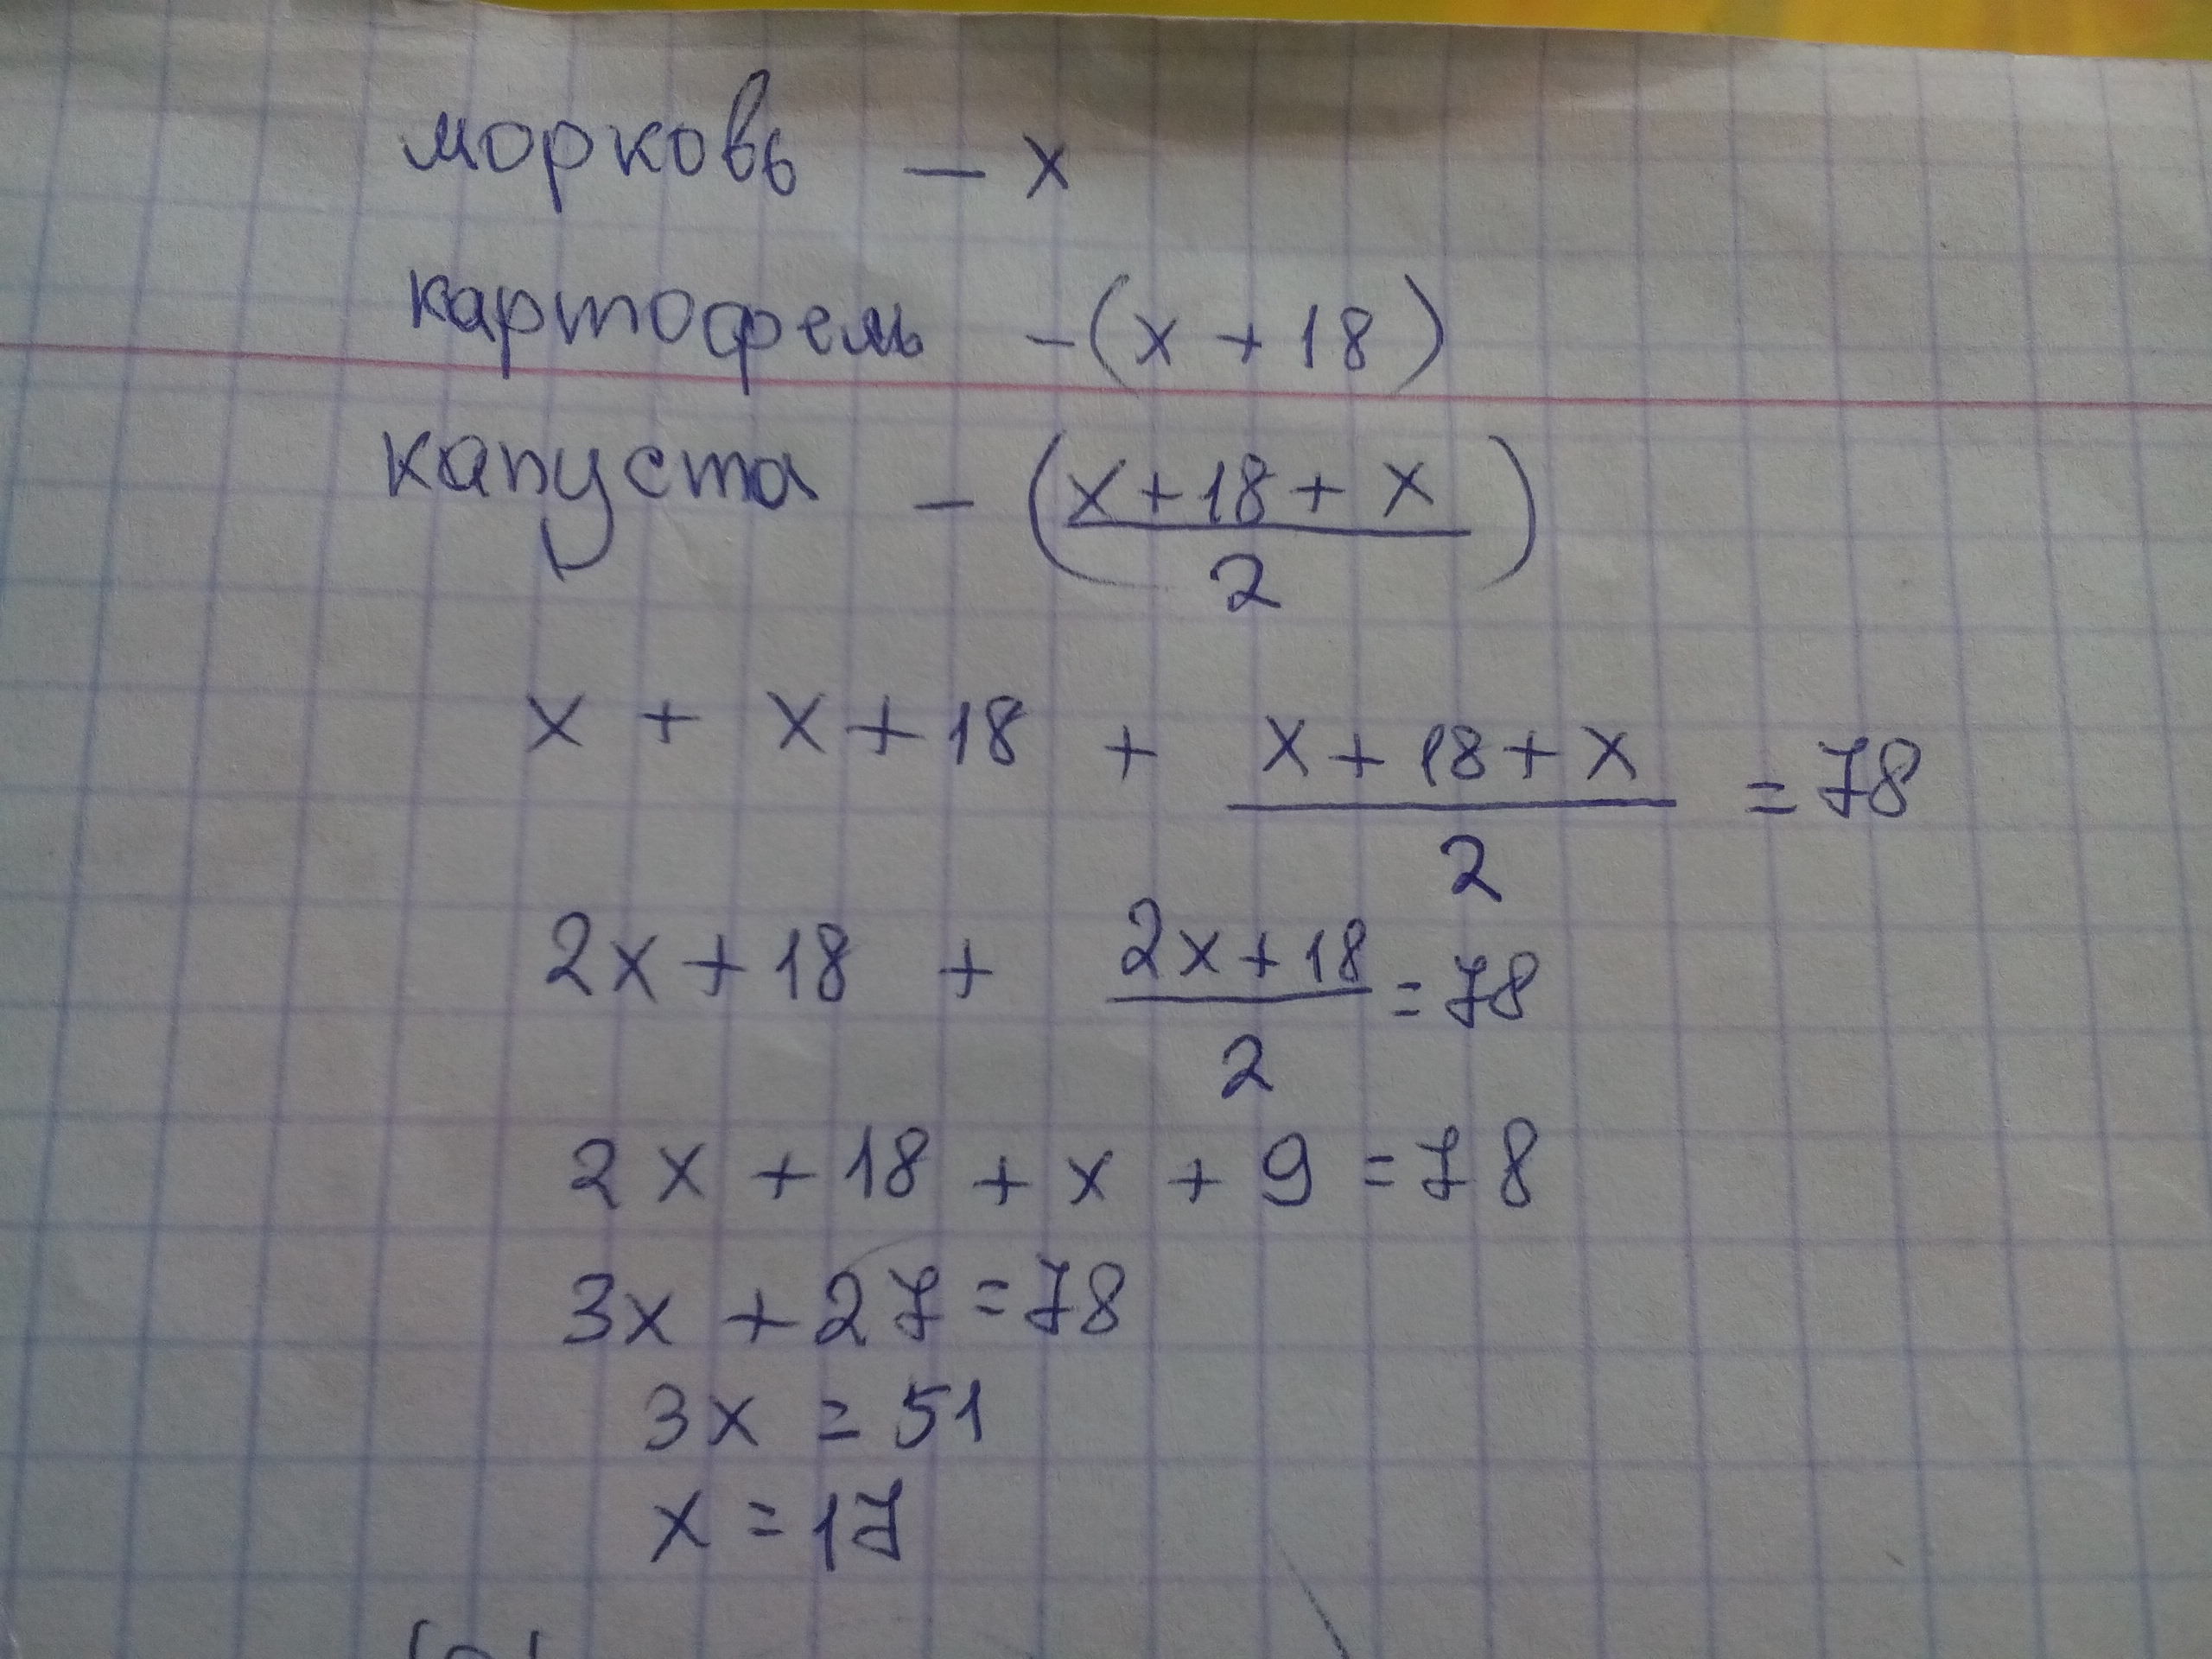 морковь – x
картофель – (x + 18)
капуста – (x + 18 + x / 2)
x + x + 18 + x + 18 + x / 2 = 78
2x + 18 + 2x + 18 / 2 = 78
2x + 18 + x + 9 = 78
3x + 27 = 78
3x = 51
x = 17